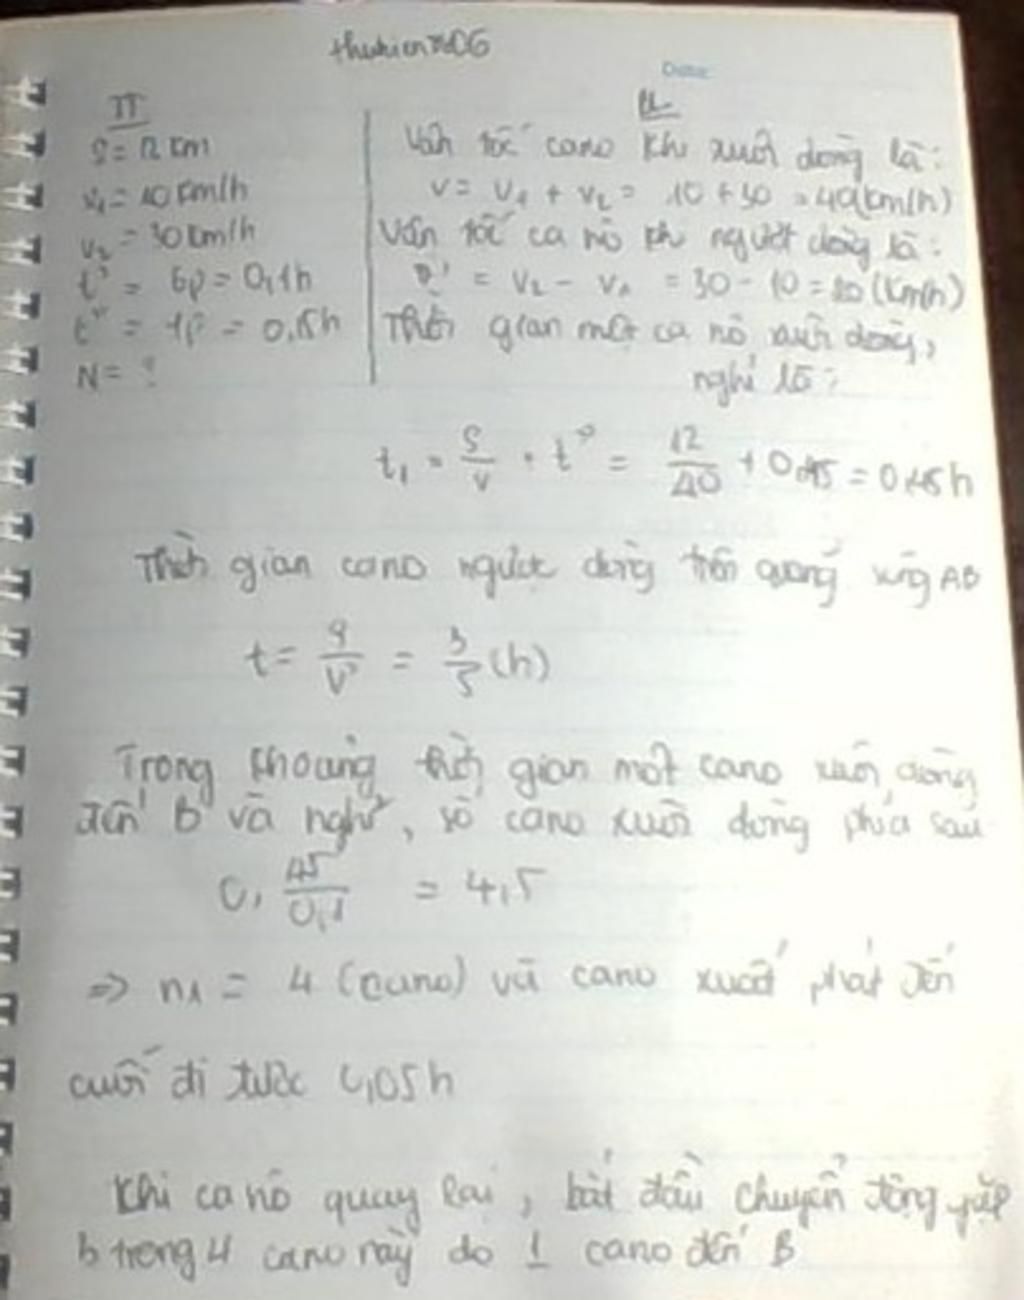 thukien2206
Date
TT
S = 12 km
v₁ = 10 km/h
v₂ = 30 km/h
t' = 6p = 0,1h
t" = 9p = 0,15h
N = ?
Vận tốc cano khi xuôi dòng là:
v = v₁ + v₂ = 10 + 30 = 40(km/h)
Vận tốc ca nô khi ngược dòng là:
v' = v₂ - v₁ = 30 - 10 = 20 (km/h)
Thời gian một ca nô xuôi dòng,
nghỉ là:
t₁ = S/v + t" = 12/40 + 0,15 = 0,45h
Thời gian cano ngược dòng trên quãng sông AB
t = S/v' = 3/5 (h)
Trong khoảng thời gian một cano xuôi dòng
đến B và nghỉ, số cano xuôi dòng phía sau
0, 45/0,1 = 4,5
=> n₁ = 4 (cano) và cano xuất phát đến
cuối đi được 0,05h
Khi ca nô quay lại, bắt đầu chuyển động gặp
trong 4 cano này do 1 cano đến B